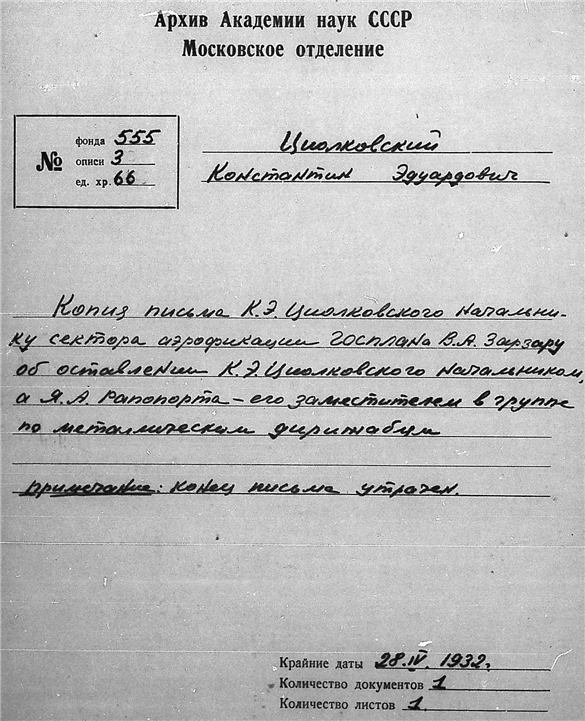 Архив Академии наук СССР
Московское отделение
№
фонда 555
описи 3
ед. хр. 66
Циолковский
Константин Эдуардович
Копия письма К.Э. Циолковского начальни-
ку сектора аэрофикации Госплана В.А. Зарзару
об оставлении К.Э. Циолковского начальником,
а Я.А. Рапопорта – его заместителем в группе
по металлическим дирижаблям
примечание: конец письма утрачен.
Крайние даты 28.IV. 1932.
Количество документов 1
Количество листов 1